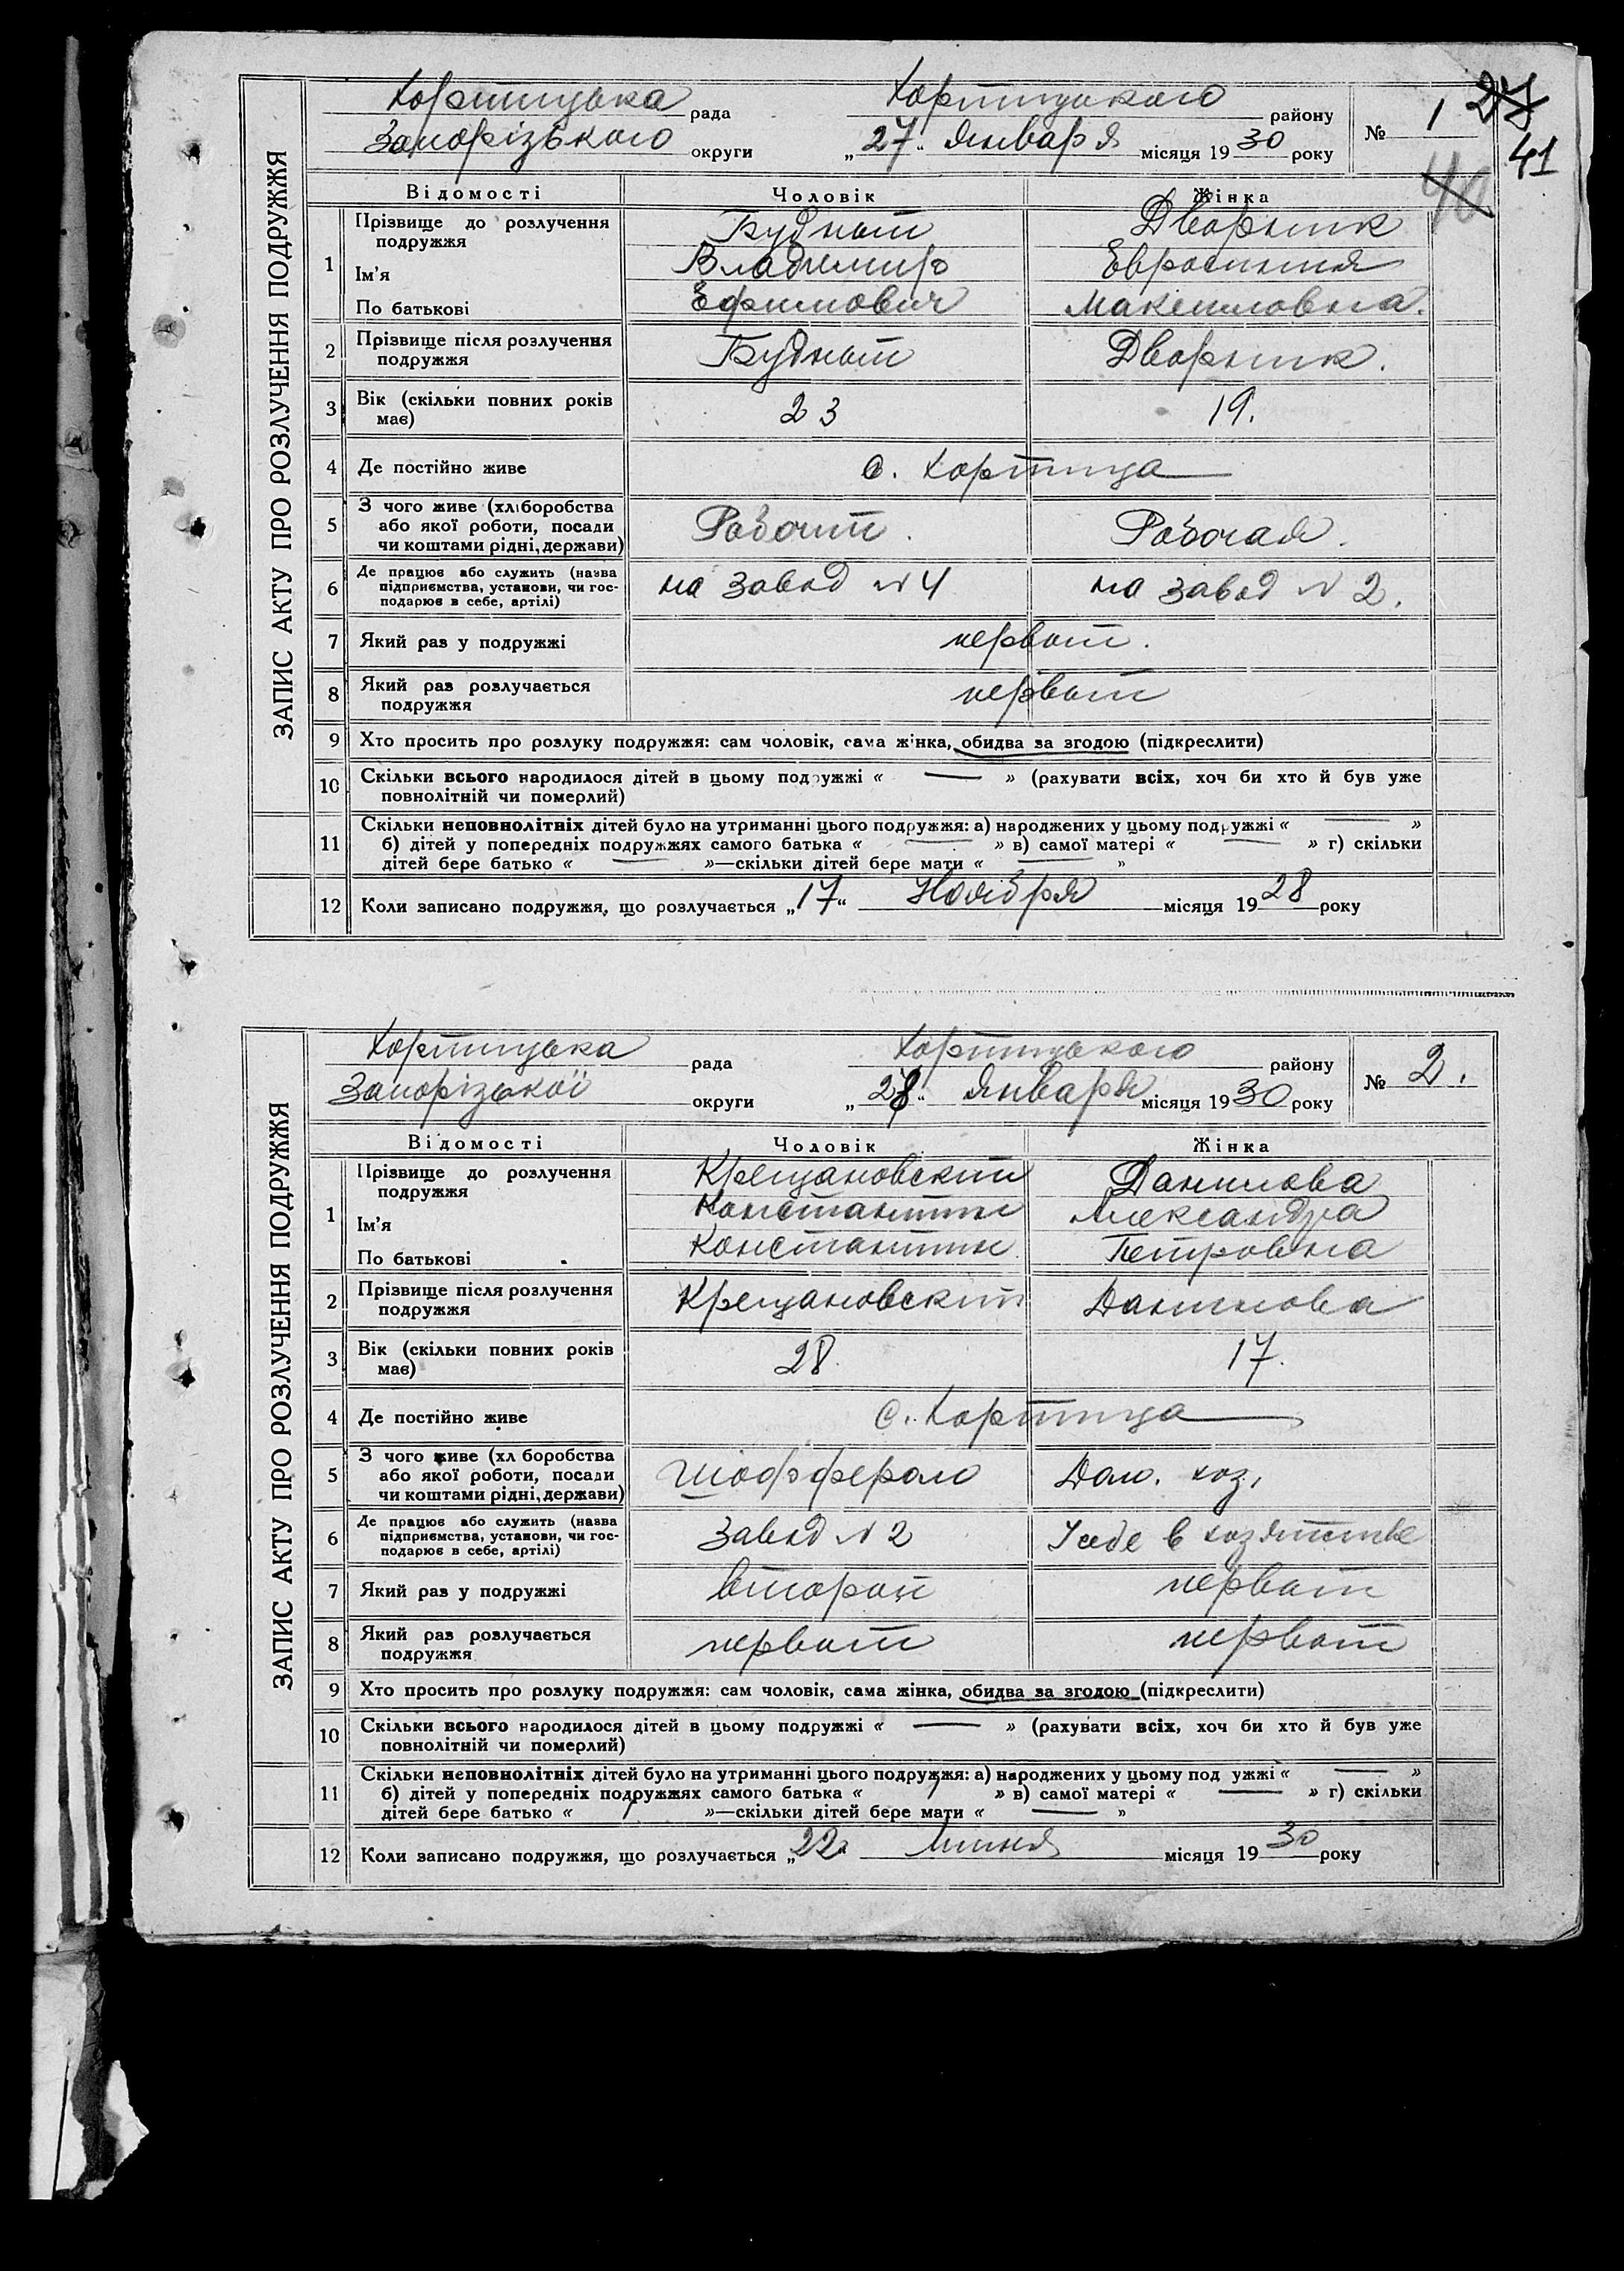 27
41
40
ЗАПИС АКТУ ПРО РОЗЛУЧЕННЯ ПОДРУЖЖЯ
Хортицька рада Хортицького району № 1
Запорізького округи „27“ Января місяця 1930 року
Відомості Чоловік Жінка
1 Прізвище до розлучення подружжя Будный Дворник
Ім'я Владимир Евросиния
По батькові Ефимович Максимовна.
2 Прізвище після розлучення подружжя Будный Дворник.
3 Вік (скільки повних років має) 23 19.
4 Де постійно живе с. Хортица
5 З чого живе (хліборобства або якої роботи, посади чи коштами рідні, держави) Рабочий. Рабочая.
6 Де працює або служить (назва підприємства, установи, чи господарює в себе, артілі) на завод N 4 на завод N 2.
7 Який раз у подружжі первый.
8 Який раз розлучається подружжя первый
9 Хто просить про розлуку подружжя: сам чоловік, сама жінка, обидва за згодою (підкреслити)
10 Скільки всього народилося дітей в цьому подружжі « — » (рахувати всіх, хоч би хто й був уже
повнолітній чи померлий)
11 Скільки неповнолітніх дітей було на утриманні цього подружжя: а) народжених у цьому подружжі « — »
б) дітей у попередніх подружжях самого батька « — » в) самої матері « — » г) скільки
дітей бере батько « — »—скільки дітей бере мати « — »
12 Коли записано подружжя, що розлучається „17“ Ноября місяця 1928 року
ЗАПИС АКТУ ПРО РОЗЛУЧЕННЯ ПОДРУЖЖЯ
Хортицька рада Хортицького району № 2.
Запорізької округи „28“ Января місяця 1930 року
Відомості Чоловік Жінка
1 Прізвище до розлучення подружжя Крещановский Данилова
Ім'я Константин Александра
По батькові Константин. Петровна
2 Прізвище після розлучення подружжя Крещановский Данилова
3 Вік (скільки повних років має) 28. 17.
4 Де постійно живе с. Хортица
5 З чого живе (хліборобства або якої роботи, посади чи коштами рідні, держави) Шоффером Дом. хоз.
6 Де працює або служить (назва підприємства, установи, чи господарює в себе, артілі) Завод N 2 У себе в хозяйстве
7 Який раз у подружжі второй первый
8 Який раз розлучається подружжя первый первый
9 Хто просить про розлуку подружжя: сам чоловік, сама жінка, обидва за згодою (підкреслити)
10 Скільки всього народилося дітей в цьому подружжі « — » (рахувати всіх, хоч би хто й був уже
повнолітній чи померлий)
11 Скільки неповнолітніх дітей було на утриманні цього подружжя: а) народжених у цьому подружжі « — »
б) дітей у попередніх подружжях самого батька « 1 » в) самої матері « — » г) скільки
дітей бере батько « 1 »—скільки дітей бере мати « — »
12 Коли записано подружжя, що розлучається „22“ місяця 1930 року